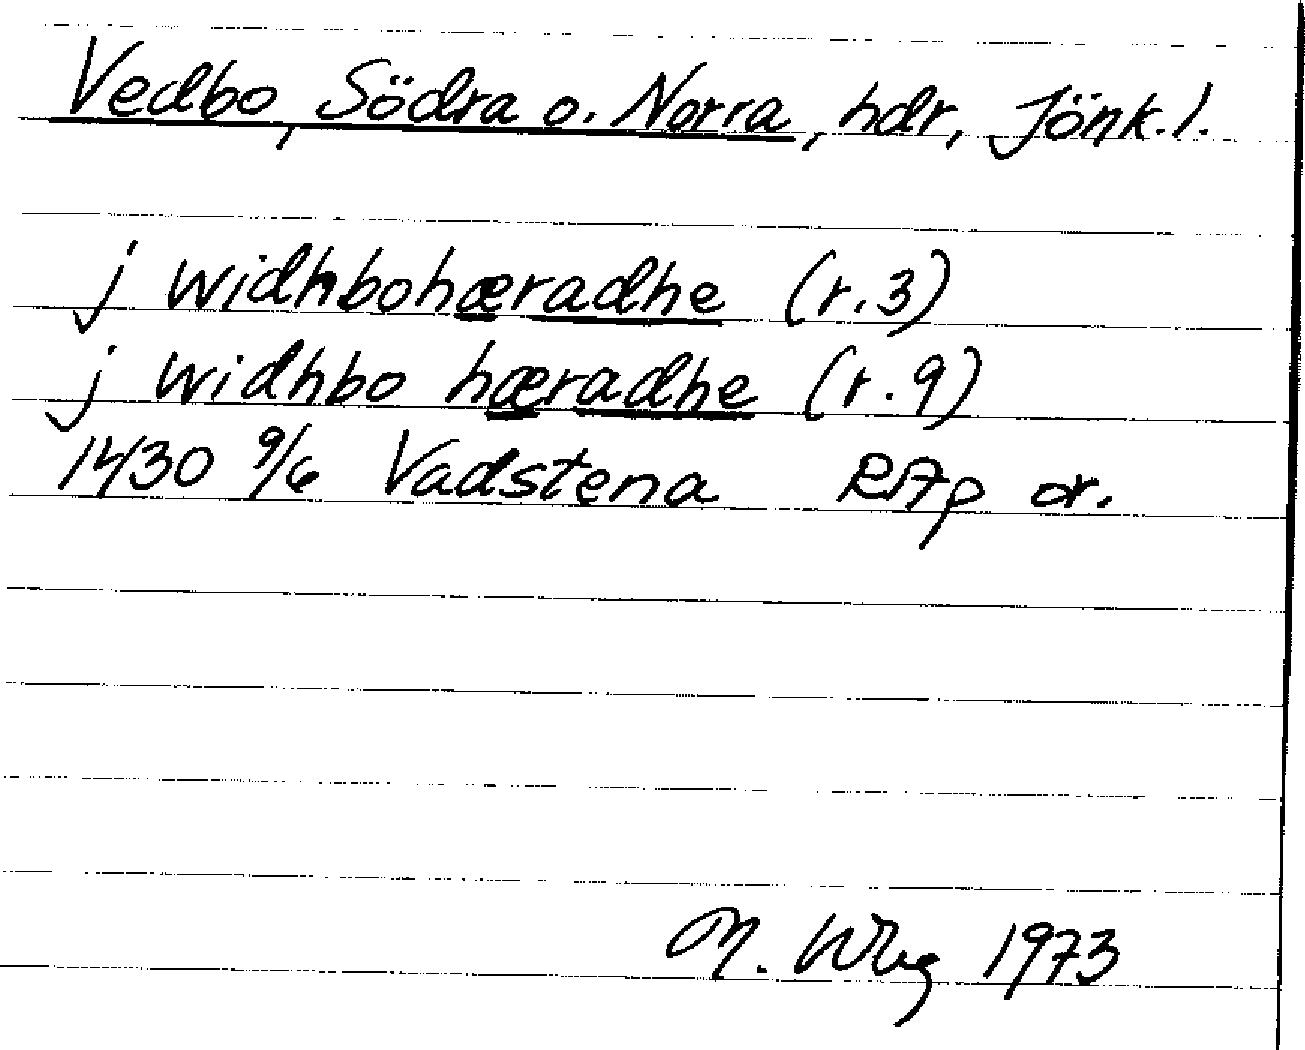 Vedbo, Södra o. Norra, hdr, Jönk. l.
j widhbohæradhe (r. 3)
j widhbo hæradhe (r. 9)
1430 9/6 Vadstena RAp or.
M. Wbg 1973